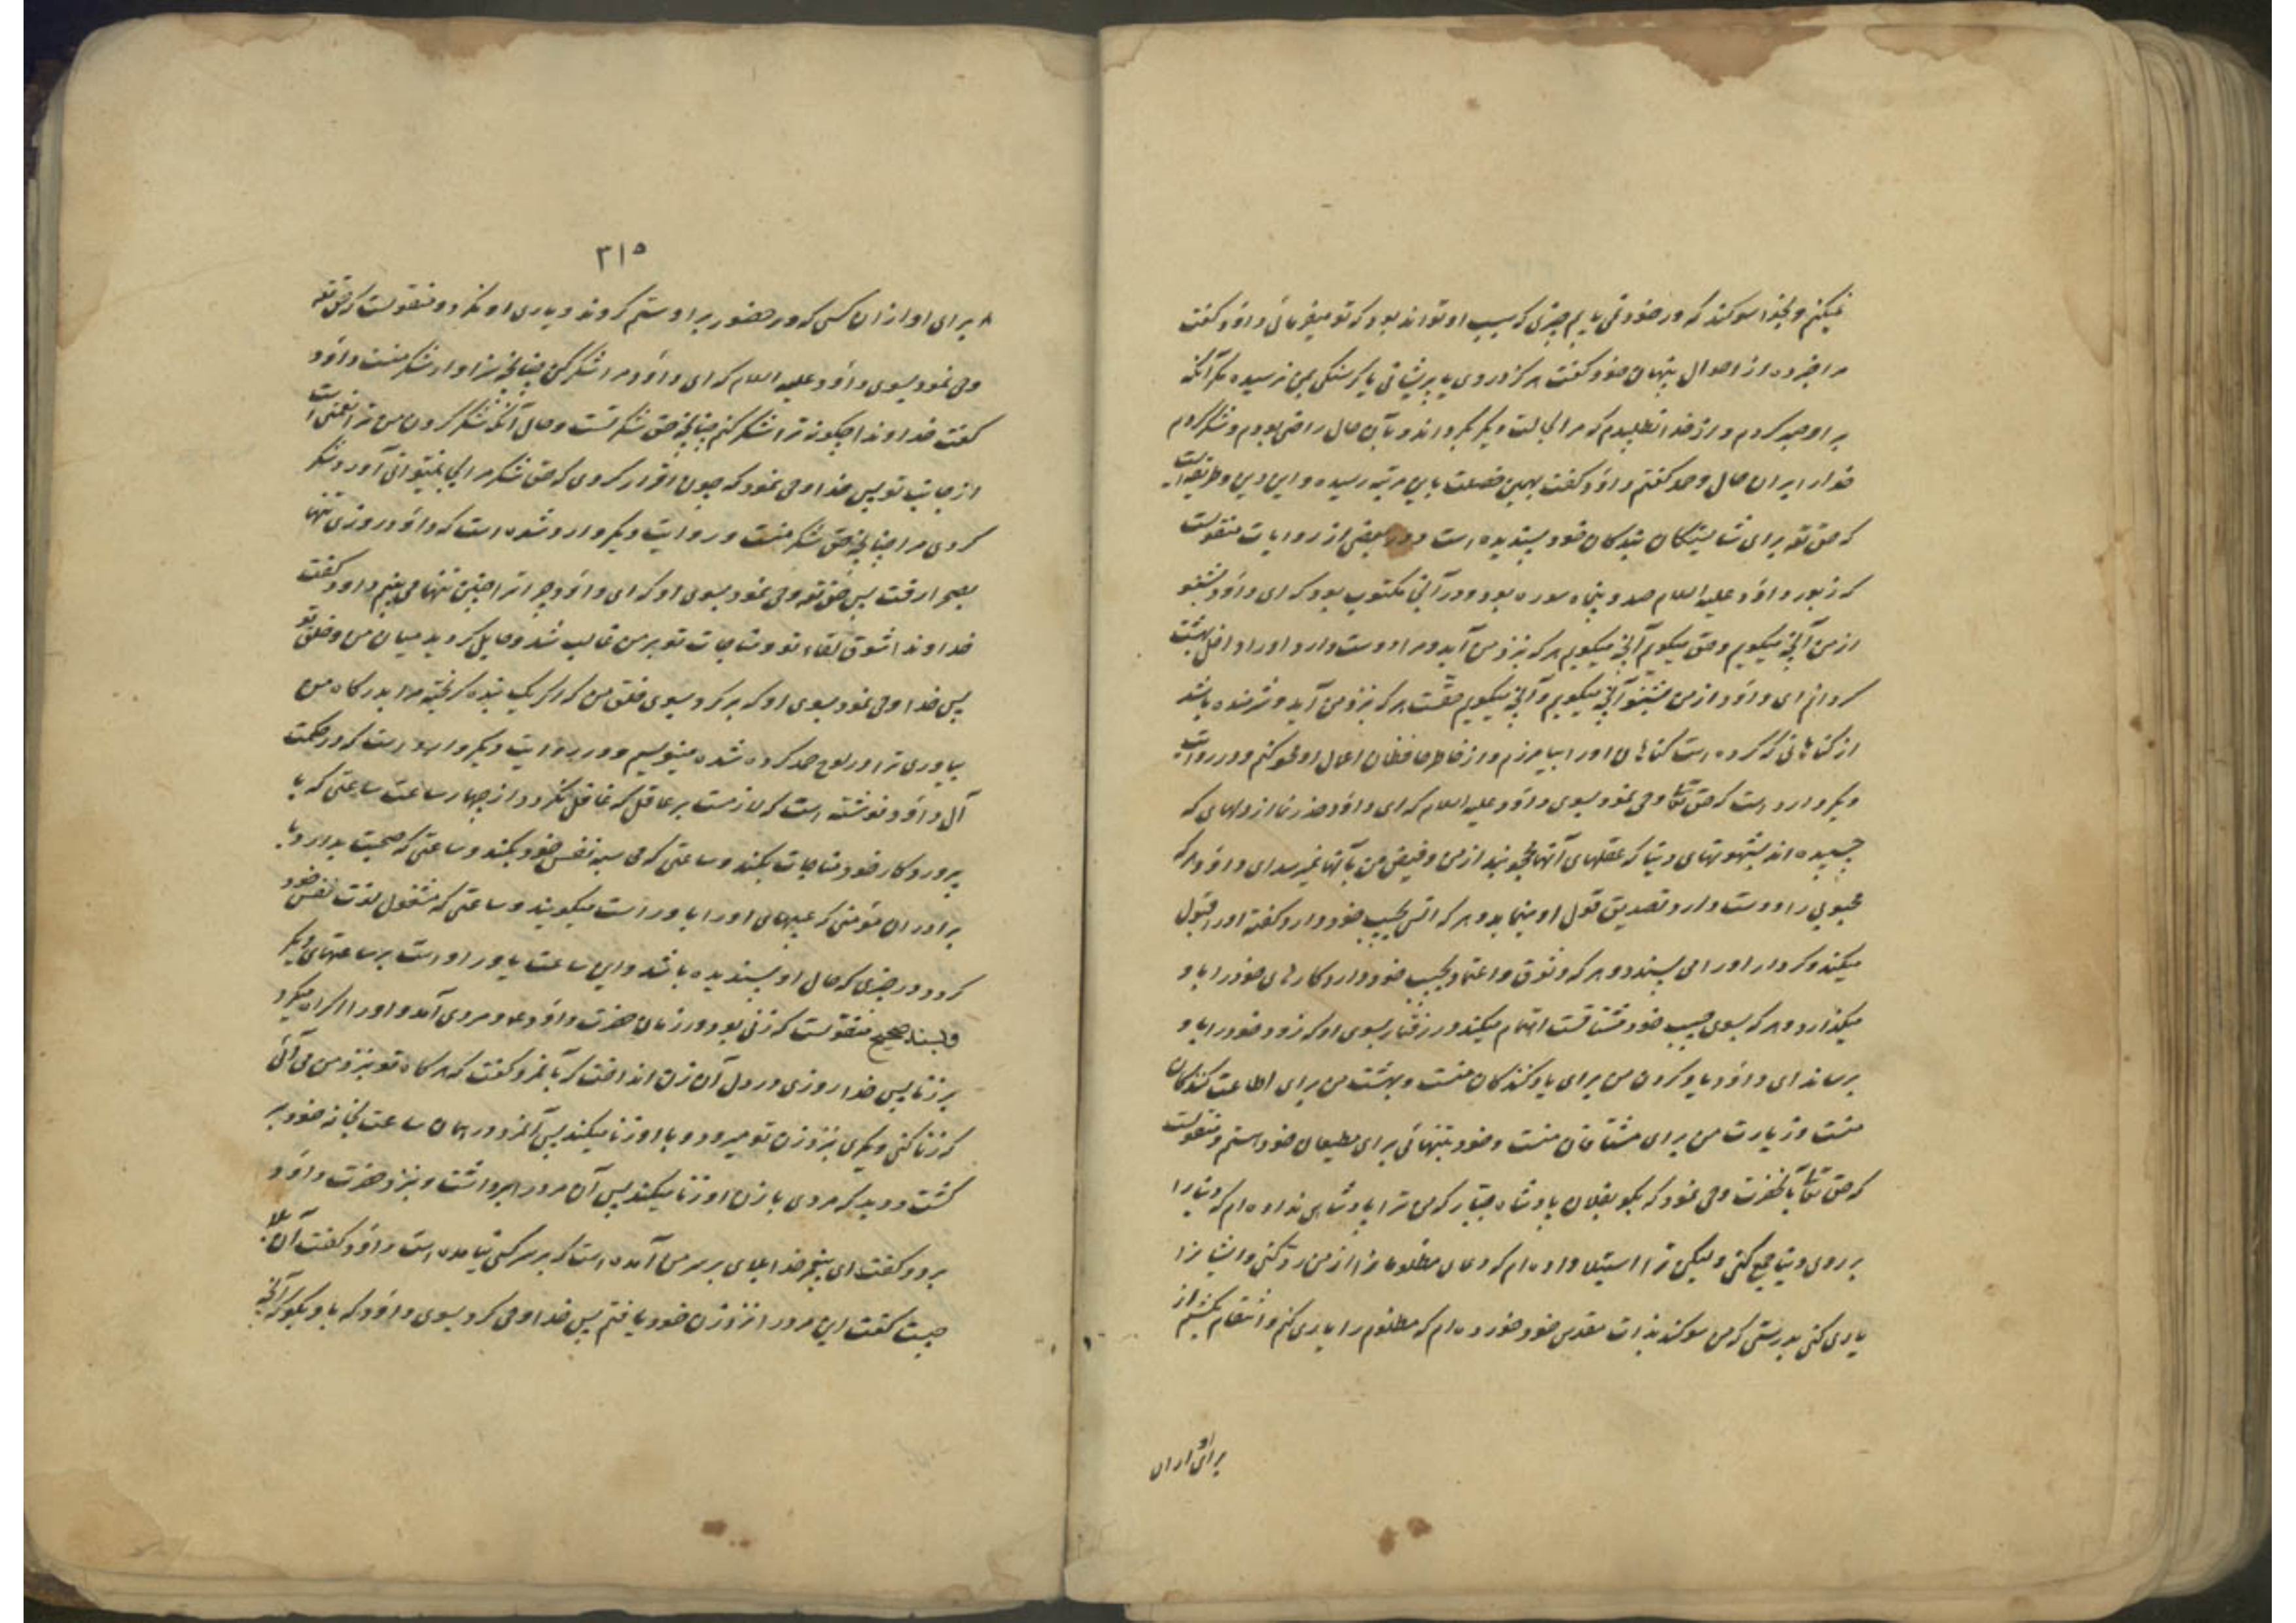 نمیکنم و بخدا سوکند که در خود نمی یابم چیزی که سبب او تواند بود که تو میفرمائی داؤد کفت
مرا خبر ده از احوال پنهان خود کفت هرکز دردی یا پریشانی یا کرسنکی بمن نرسیده مکر آنکه
بر او صبر کردم و از خدا نطلبیدم که مرا بحالت دیکر بکرداند و بآن حال راضی بودم و شکر کردم
خدا را بر ان حال و حمد کفتم داؤد کفت بهمین خصلت باین مرتبه رسیده و این دین و طریقه ایست
که حق تعه برای شایستکان بندکان خود پسندیده است و در بعضی از روایات منقولست
که زبور داؤد علیه السلام صد و پنجاه سوره بود و در آنجا مکتوب بود که ای داؤد بشنو
از من آنچه میکویم و حق میکویم آنچه میکویم هر که بنزد من آید و مرا دوست دارد او را داخل بهشت
کردانم ای داؤد از من بشنو آنچه میکویم و آنچه میکویم حقست هر که بنزد من آید و شرمنده باشد
از کناهانی که کرده است کناهان او را بیامرزم و از خاطر حافظان اعمال او محو کنم و در روایت
دیکر وارد است که حق تعالی وحی نمود بسوی داؤد علیه السلام که ای داؤد حذر نما از دلهائی که
چسبیده اند بشهوتهای دنیا که عقلهای آنها محجوبند از من و فیض من بآنها نمیرسد ای داؤد هر که
محبوبی را دوست دارد تصدیق قول او مینماید و هر که انس بحبیب خود دارد کفته او را قبول
میکند و کردار او را می پسندد و هر که وثوق و اعتماد بحبیب خود دارد کارهای خود را باو
میکذارد و هر که بسوی حبیب خود مشتاقست اهتمام میکند در رفتار بسوی او که زود خود را باو
برساند ای داؤد یاد کردن من برای یاد کنندکان منست و بهشت من برای اطاعت کنندکان
منست و زیارت من برای مشتاقان منست و خود بتنهائی برای مطیعان خود هستم و منقولست
که حق تعالی بآنحضرت وحی نمود که بکو بفلان پادشاه جبار که من ترا پادشاهی نداده ام که دنیا را
بر روی دنیا جمع کنی و لیکن ترا استیلا داده ام که دعای مظلومانرا از من رد کنی و ایشانرا
یاری کنی بدرستی که من سوکند بذات مقدس خود خورده ام که مظلوم را یاری کنم و انتقام بکشم از
برای او از ان
۳۱۵
برای او از ان کسی که در حضور بر او ستم کردند و یاری او نکرد و منقولست که حق تعه
وحی نمود بسوی داؤد علیه السلام که ای داؤد مرا شکر کن چنانچه سزاوار شکر منست داؤد
کفت خداوندا چکونه ترا شکر کنم چنانچه حق شکر تست و حال آنکه شکر کردن من ترا نعمتی است
از جانب تو پس خدا وحی نمود که چون اقرار کردی که حق شکر مرا بجا نمیتوانی آورد شکر
کردی مرا چنانچه حق شکر منست و در روایت دیکر وارد شده است که داؤد روزی تنها
بصحرا رفت پس حق تعه وحی نمود بسوی او که ای داؤد چرا ترا چنین تنها می بینم داود کفت
خداوندا شوق لقاء تو و مناجات تو بر من غالب شد و حایل کردید میان من و خلق تو
پس خدا وحی نمود بسوی او که برکرد بسوی خلق من که اکر یک بنده کریخته مرا بدرکاه من
بیاوری ترا در لوح حمد کرده شده مینویسم و در روایت دیکر وارد است که در حکمت
آل داؤد نوشته است که لازمست بر عاقل که غافل نکردد از چهار ساعت ساعتی که با
پروردکار خود مناجات بکند و ساعتی که محاسبه نفس خود بکند و ساعتی که صحبت بدارد با
برادران مؤمنی که عیبهای او را باو راست میکویند و ساعتی که مشغول لذت نفس خود
کردد در چیزی که حلال او پسندیده باشد و این ساعت یاور او است بر ساعتهای دیکر
و بسند صحیح منقولست که زنی بود در زمان حضرت داؤد ع و مردی آمد و او را اکراه میکرد
بر زنا پس خدا روزی در دل آن زن انداخت که بآنمرد کفت که هرکاه تو بنزد من می آئی
که زنا کنی دیکری بنزد زن تو میرود و با او زنا میکند پس آنمرد در همان ساعت بخانه خود بر
کشت و دید که مردی با زن او زنا میکند پس آن مرد را برداشت و بنزد حضرت داؤد
برد و کفت ای پیغمبر خدا بلای بر سر من آمده است که بر سر کسی نیامده است داؤد کفت آن بلا
چیست کفت این مرد را نزد زن خود یافتم پس خدا وحی کرد بسوی داؤد که باو بکو که آنچه